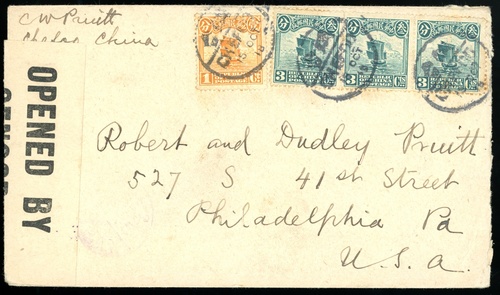 C W Pruitt
Chefoo China
OPENED BY
CENSOR
1
3 CTS
3 CTS
3 CTS
OCT
OCT
Robert and Dudley Pruitt
527 S 41st Street
Philadelphia Pa
U. S. A.